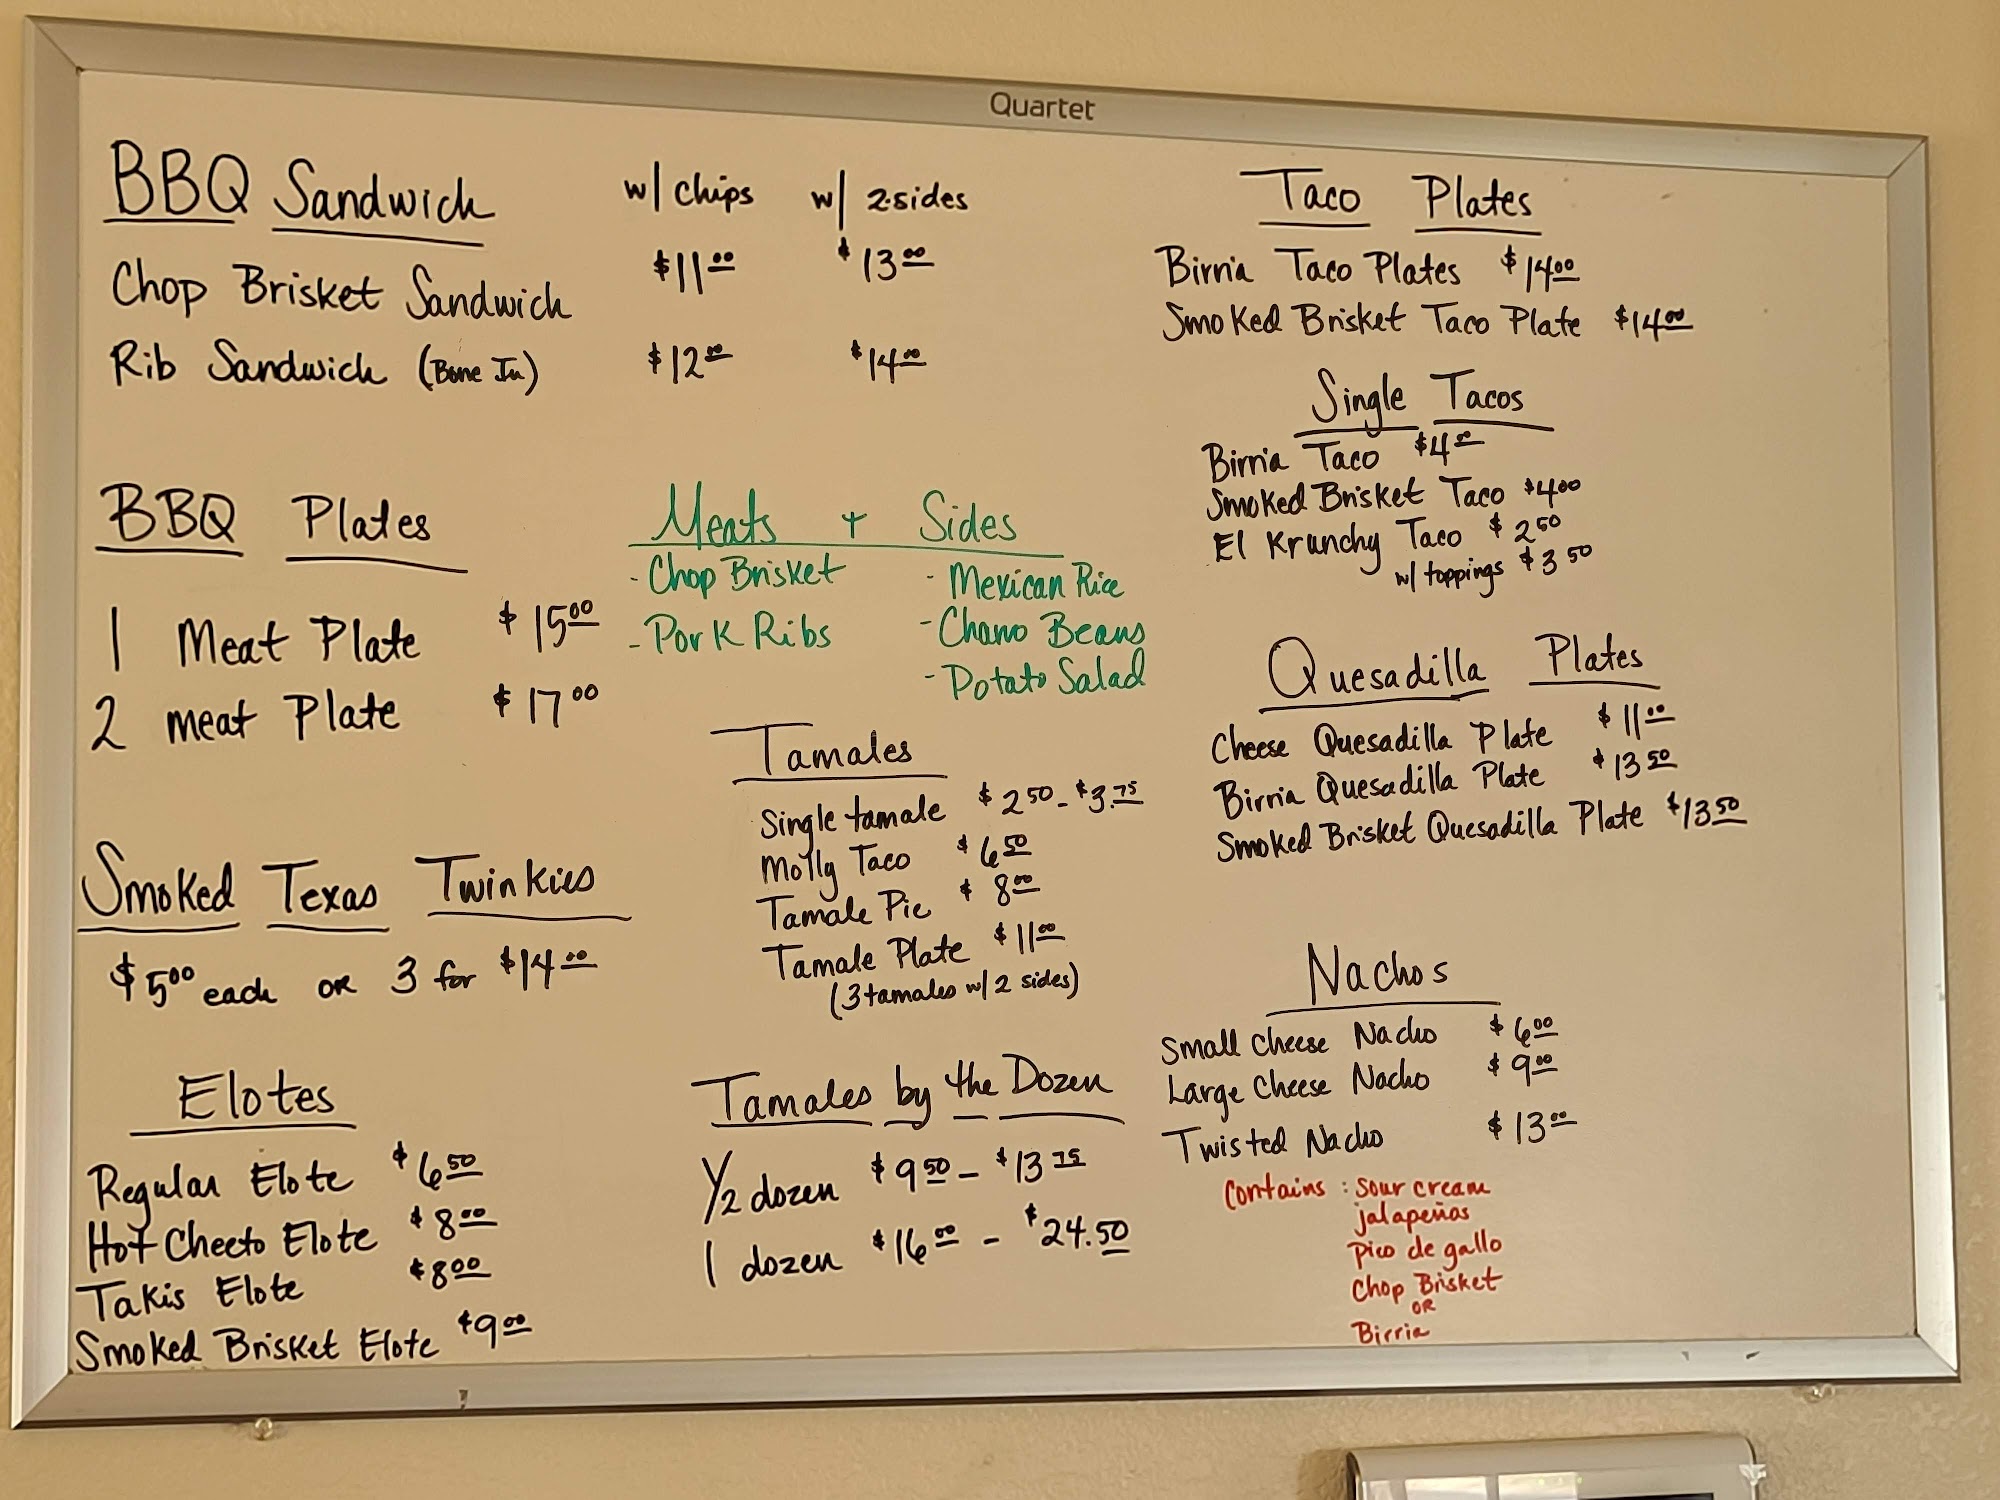 Quartet
BBQ Sandwich w/ chips w/ 2 sides
Chop Brisket Sandwich $11.00 $13.00
Rib Sandwich (Bone In) $12.00 $14.00
BBQ Plates
1 Meat Plate $15.00
2 meat Plate $17.00
Meats + Sides
- Chop Brisket - Mexican Rice
- Pork Ribs - Charro Beans
- Potato Salad
Smoked Texas Twinkies
$5.00 each OR 3 for $14.00
Elotes
Regular Elote $6.50
Hot Cheeto Elote $8.00
Takis Elote $8.00
Smoked Brisket Elote $9.00
Tamales
Single tamale $2.50 - $3.75
Molly Taco $6.50
Tamale Pie $8.00
Tamale Plate $11.00
(3 tamales w/ 2 sides)
Tamales by the Dozen
1/2 dozen $9.50 - $13.75
1 dozen $16.00 - $24.50
Taco Plates
Birria Taco Plates $14.00
Smoked Brisket Taco Plate $14.00
Single Tacos
Birria Taco $4.00
Smoked Brisket Taco $4.00
El Krunchy Taco $2.50
w/ toppings $3.50
Quesadilla Plates
Cheese Quesadilla Plate $11.00
Birria Quesadilla Plate $13.50
Smoked Brisket Quesadilla Plate $13.50
Nachos
Small Cheese Nacho $6.00
Large Cheese Nacho $9.00
Twisted Nacho $13.00
Contains : Sour cream
jalapeñas
pico de gallo
Chop Brisket
OR
Birria